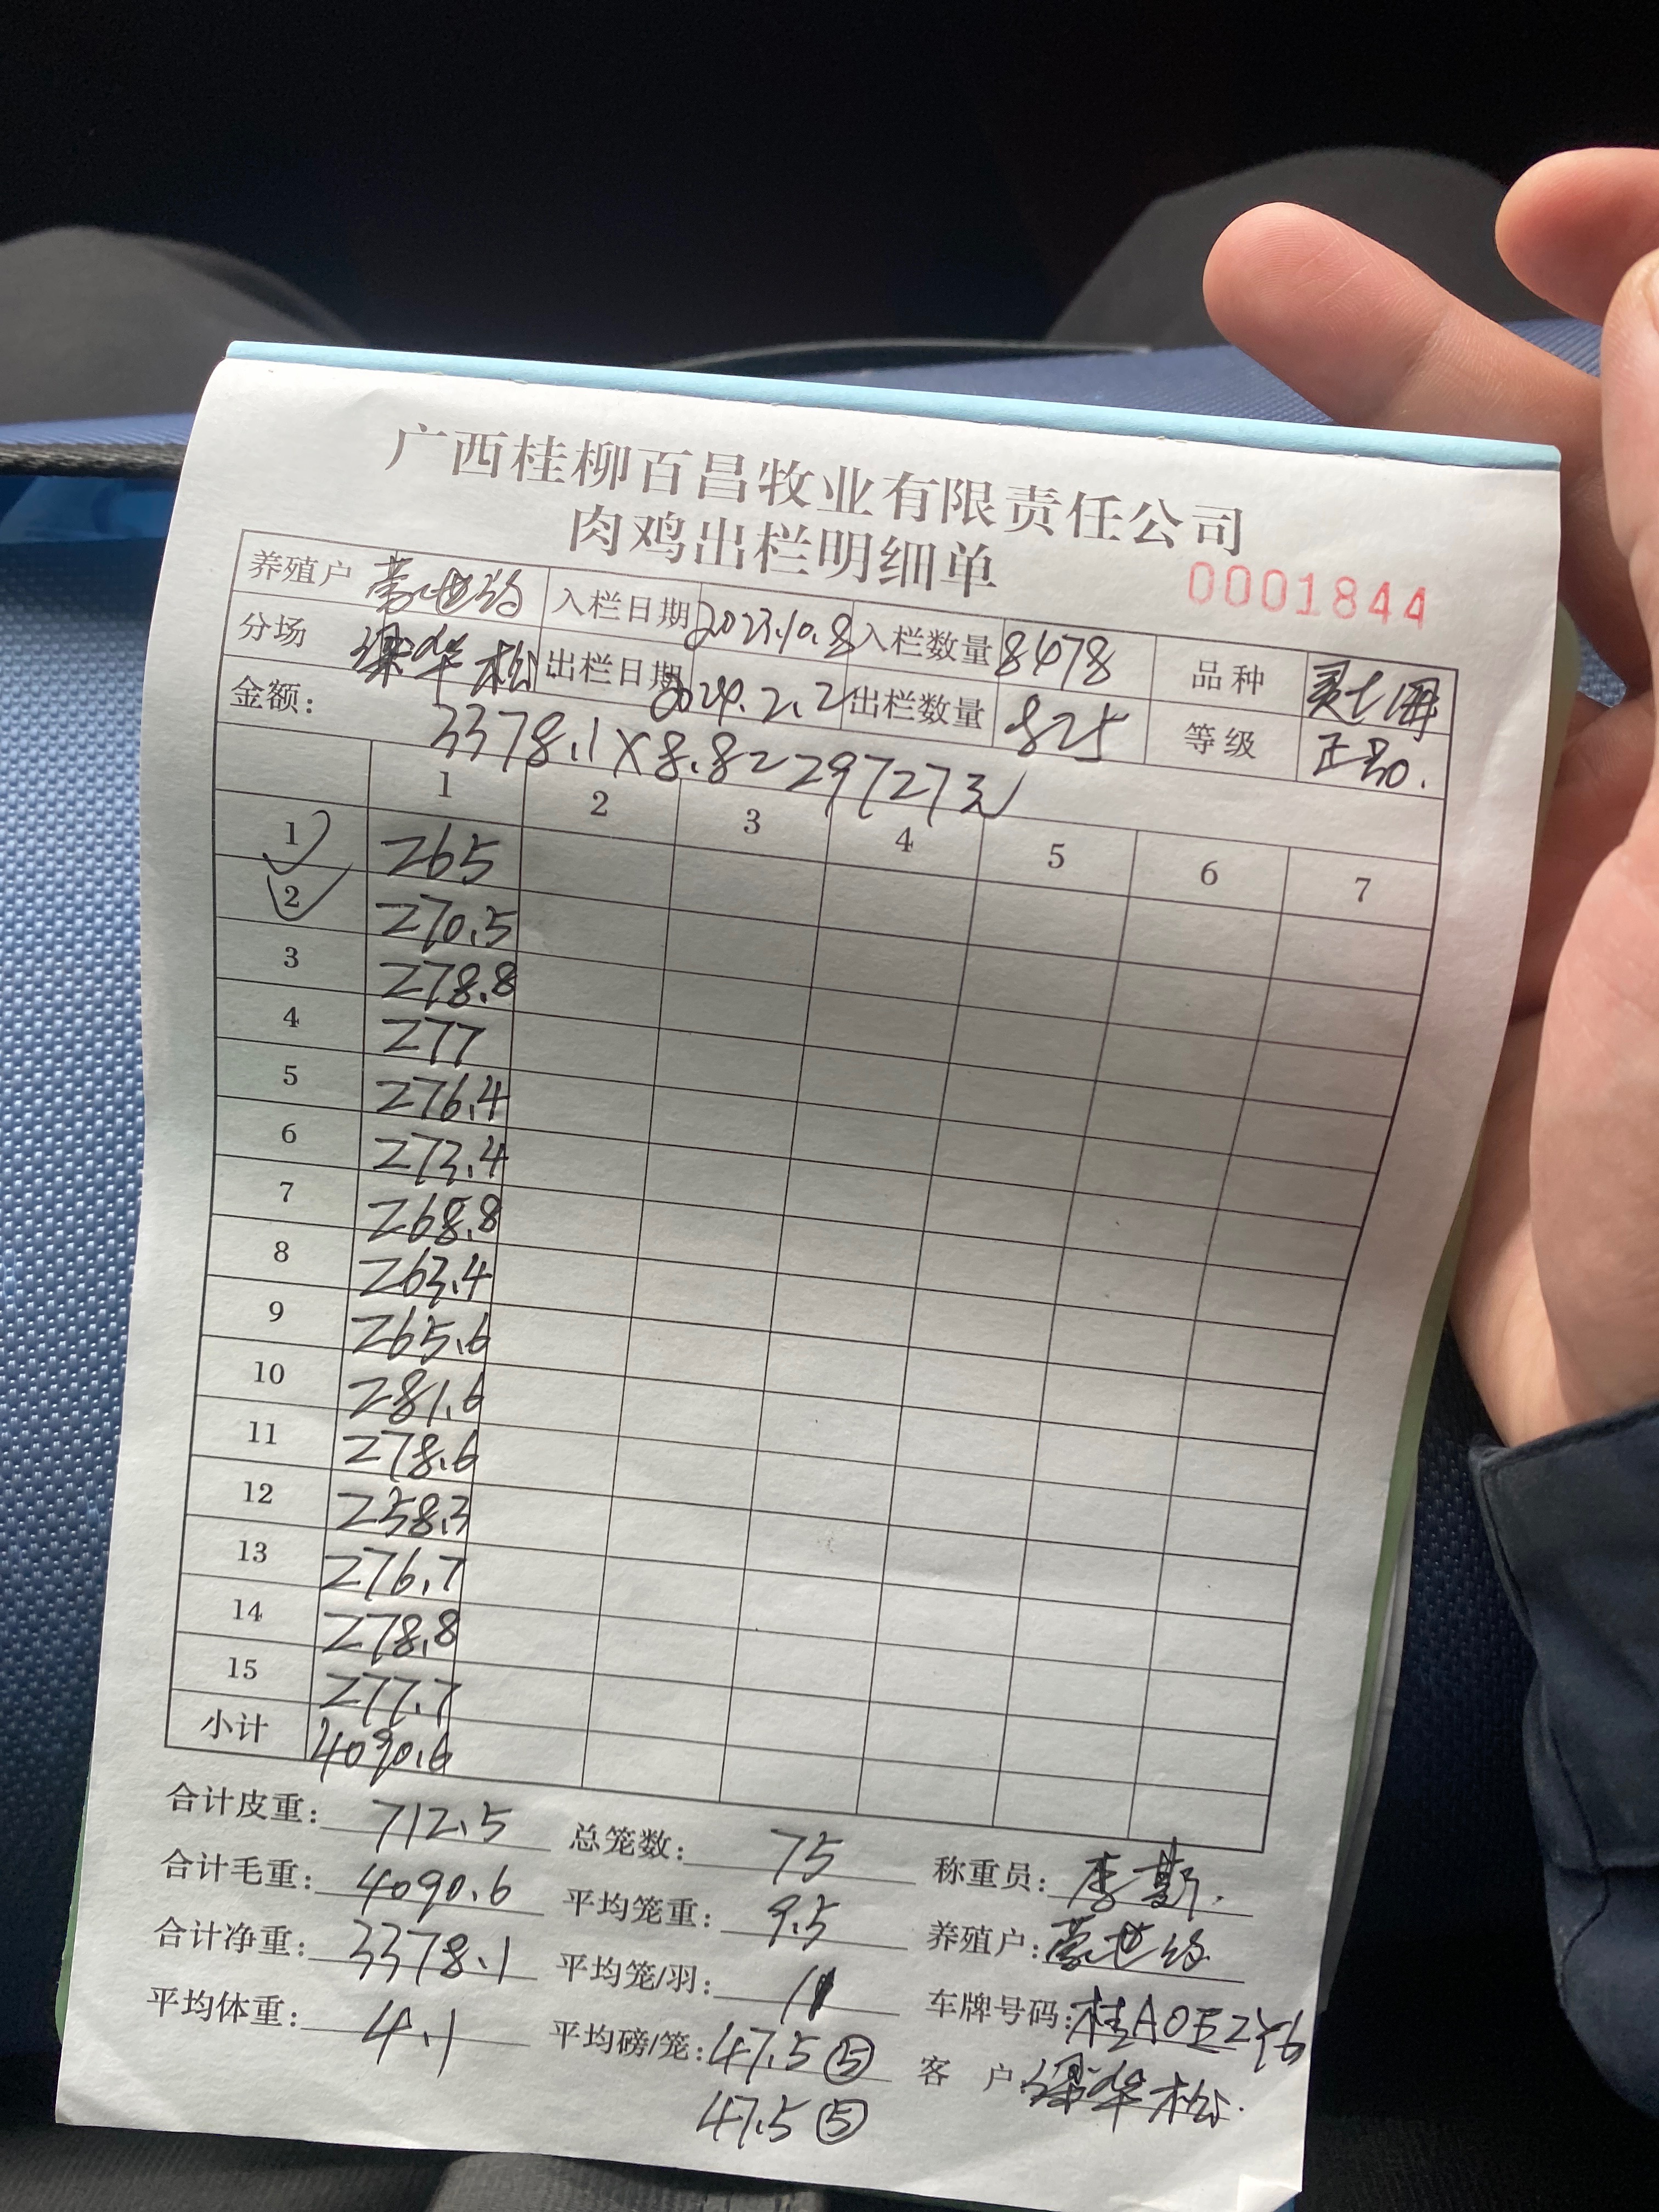 广西桂柳百昌牧业有限责任公司
肉鸡出栏明细单
0001844
养殖户 蒙世 入栏日期 2023.10.8 入栏数量 8478 品种
分场 梁华松 出栏日期 2024.2.2 出栏数量 825 等级 正品.
金额: 3378.1×8.8=29727元
1 2 3 4 5 6 7
1 265
2 270.5
3 278.8
4 277
5 276.4
6 273.4
7 268.8
8 263.4
9 265.6
10 281.6
11 278.6
12 258.3
13 276.7
14 278.8
15 277.7
小计 4090.6
合计皮重: 712.5 总笼数: 75 称重员: 李斯.
合计毛重: 4090.6 平均笼重: 9.5 养殖户: 蒙世
合计净重: 3378.1 平均笼/羽: 11 车牌号码: 桂A0EZY6
平均体重: 4.1 平均磅/笼: 47.5⑤ 客 户: 梁华松.
47.5⑤